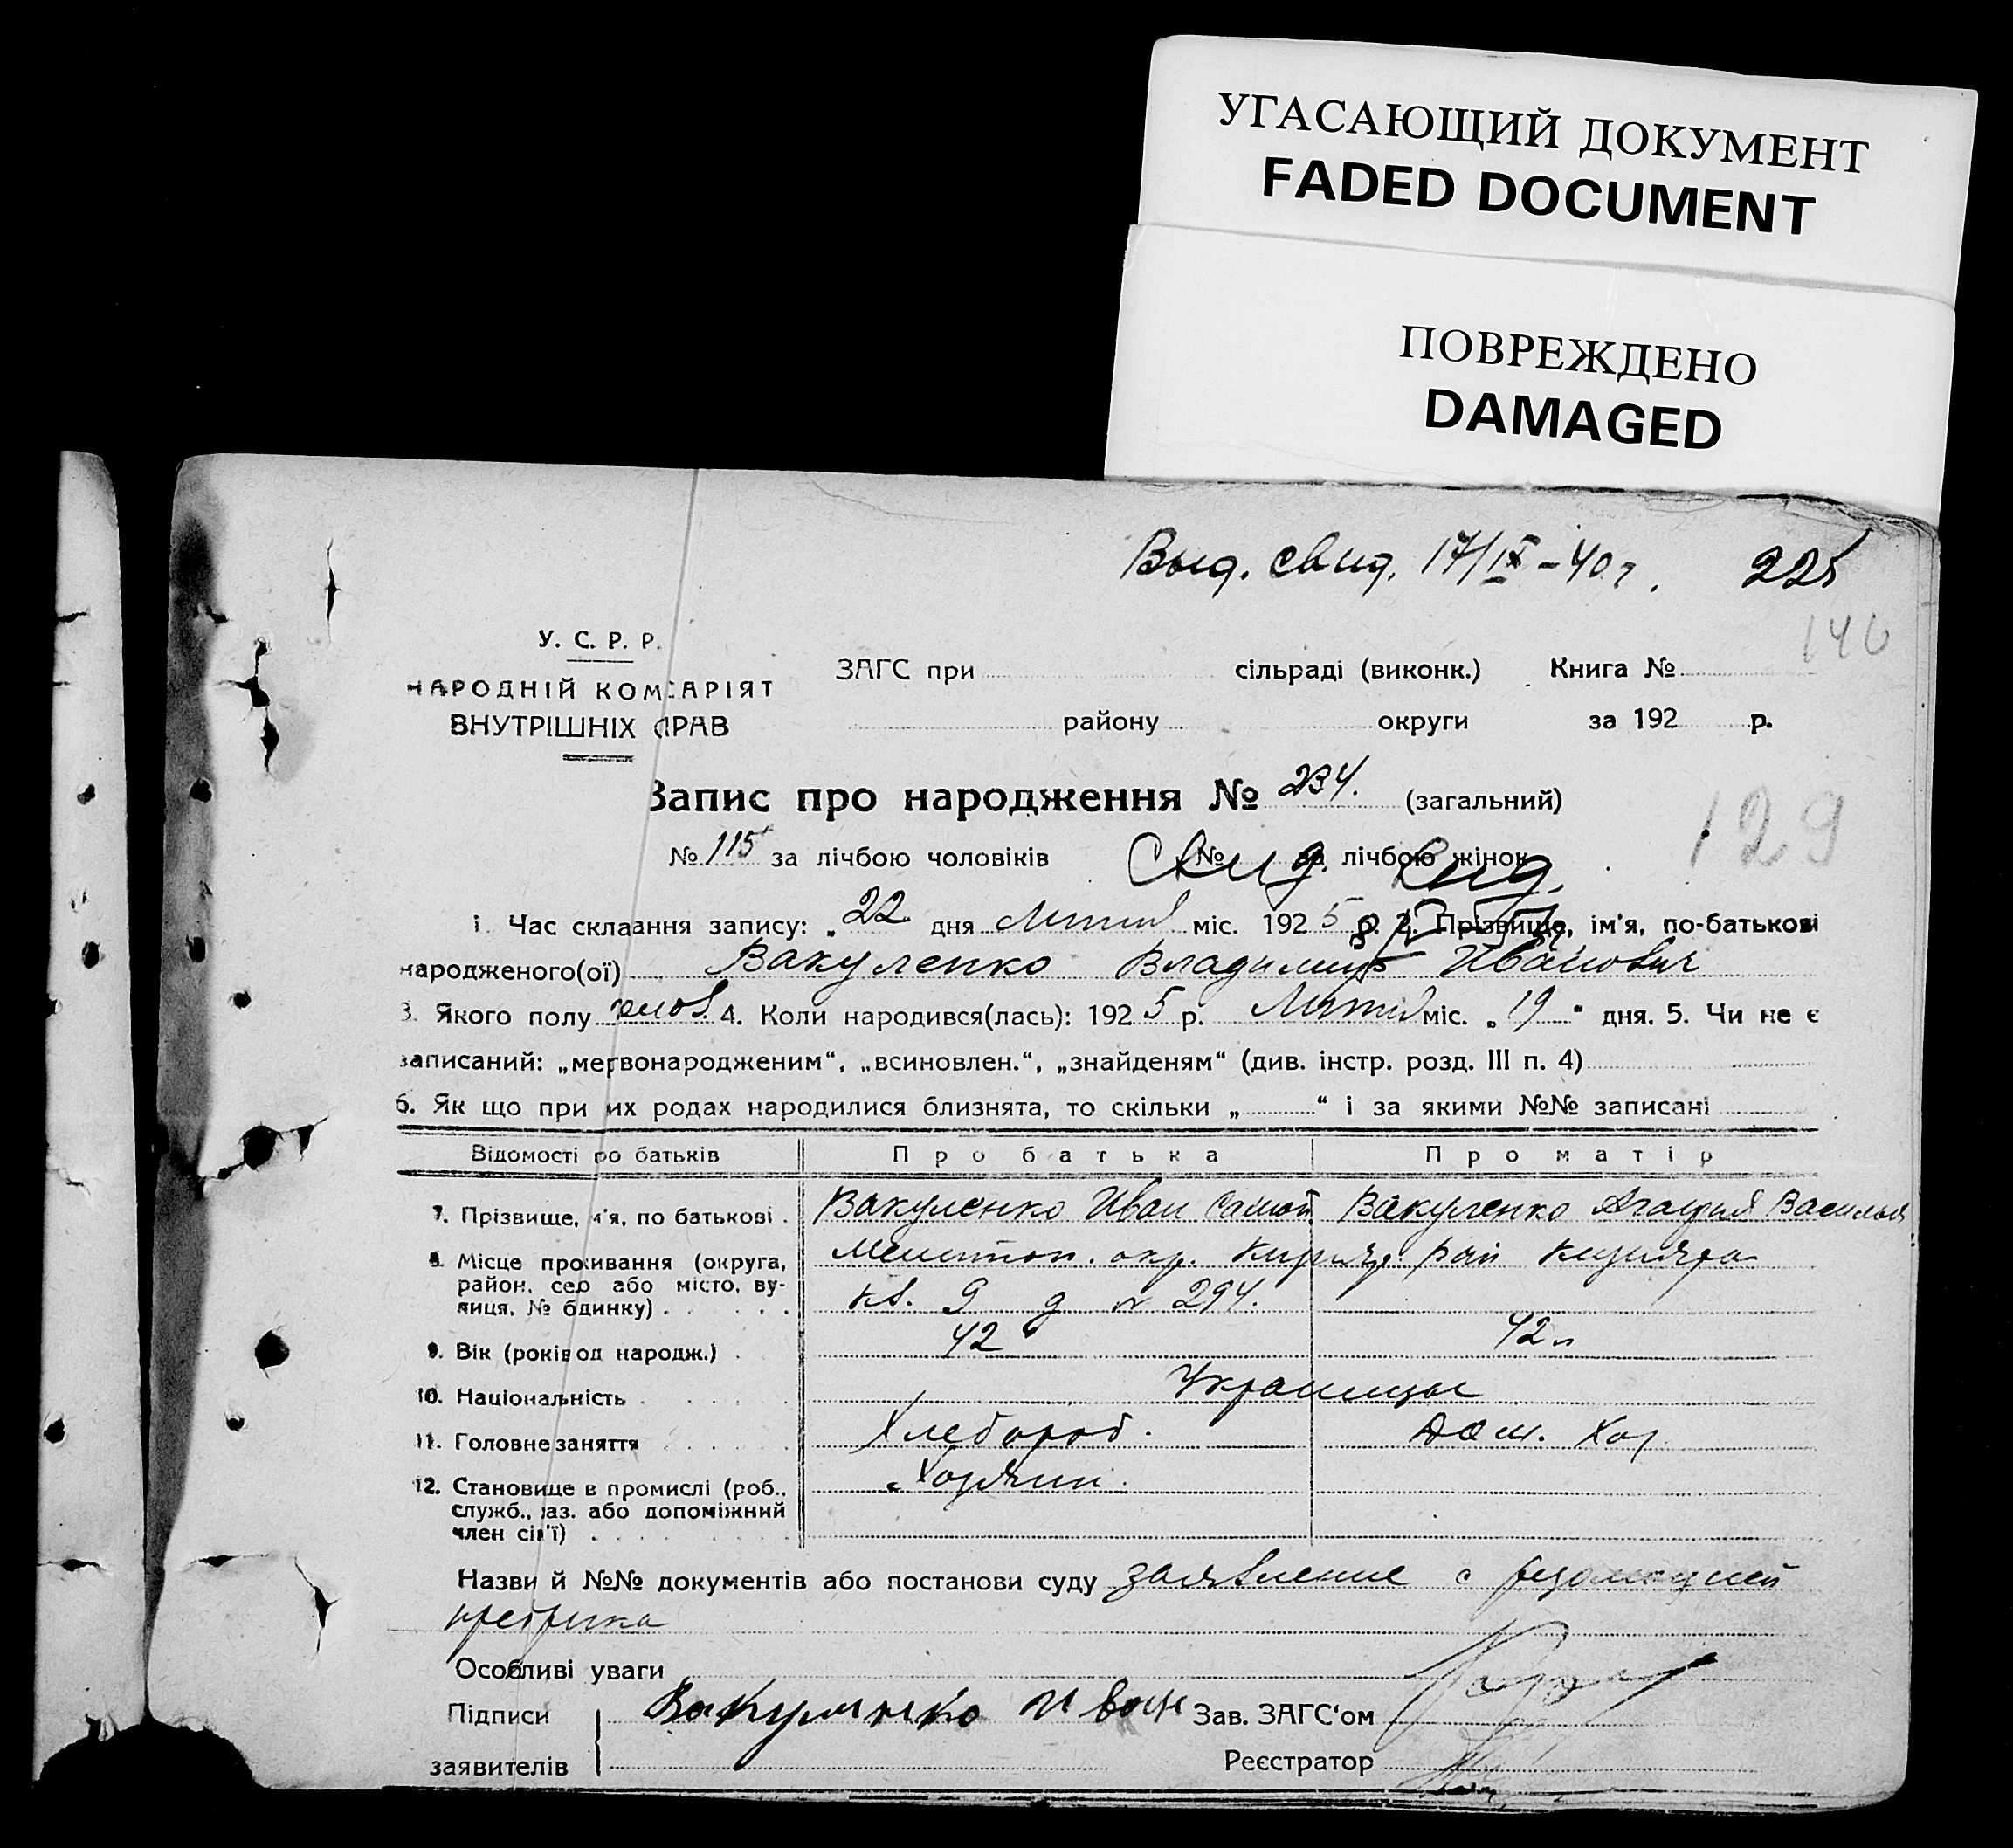 УГАСАЮЩИЙ ДОКУМЕНТ
FADED DOCUMENT
ПОВРЕЖДЕНО
DAMAGED
Выд. свид. 17/IX-40 г. 225
140
У. С. Р. Р.
НАРОДНІЙ КОМІСАРІЯТ
ВНУТРІШНІХ СПРАВ
ЗАГС при сільраді (виконк.) Книга №
району округи за 192 р.
Запис про народження № 234. (загальний)
129
№ 115 за лічбою чоловіків № за лічбою жінок
Свид. Выд.
1. Час складання запису: „22 дня Лютий міс. 1925 р. 2. Прізвище, ім'я, по-батькові
народженого(ої) Вакуленко Владимир Иванович
3. Якого полу 4. Коли народився(лась): 1925 р. Лютий міс. „19" дня. 5. Чи не є
записаний: „мертвонародженим“, „всиновлен.“, „знайденям“ (див. інстр. розд. III п. 4)
6. Як що при цих родах народилися близнята, то скільки „ “ і за якими №№ записані
Відомості про батьків Про батька Про матір
7. Прізвище, ім'я, по батькові . Вакуленко Иван Самой. Вакуленко Агафия Василье
8. Місце проживання (округа, район, село або місто, вулиця, № будинку) Мелитоп. окр. рай Кизияра
кв. 9 д № 294.
9. Вік (років од народж.) . 42 42 л
10. Національність Украинцы
11. Головне заняття Хлебороб. Дом. Хоз
12. Становище в промислі (роб., Хозяин.
служб., хаз. або допоміжний
член сім'ї)
Назви й №№ документів або постанови суду заявление с резолюцией
Особливі уваги
Підписи Вакуленко Иван Зав. ЗАГС'ом
заявителів Реєстратор